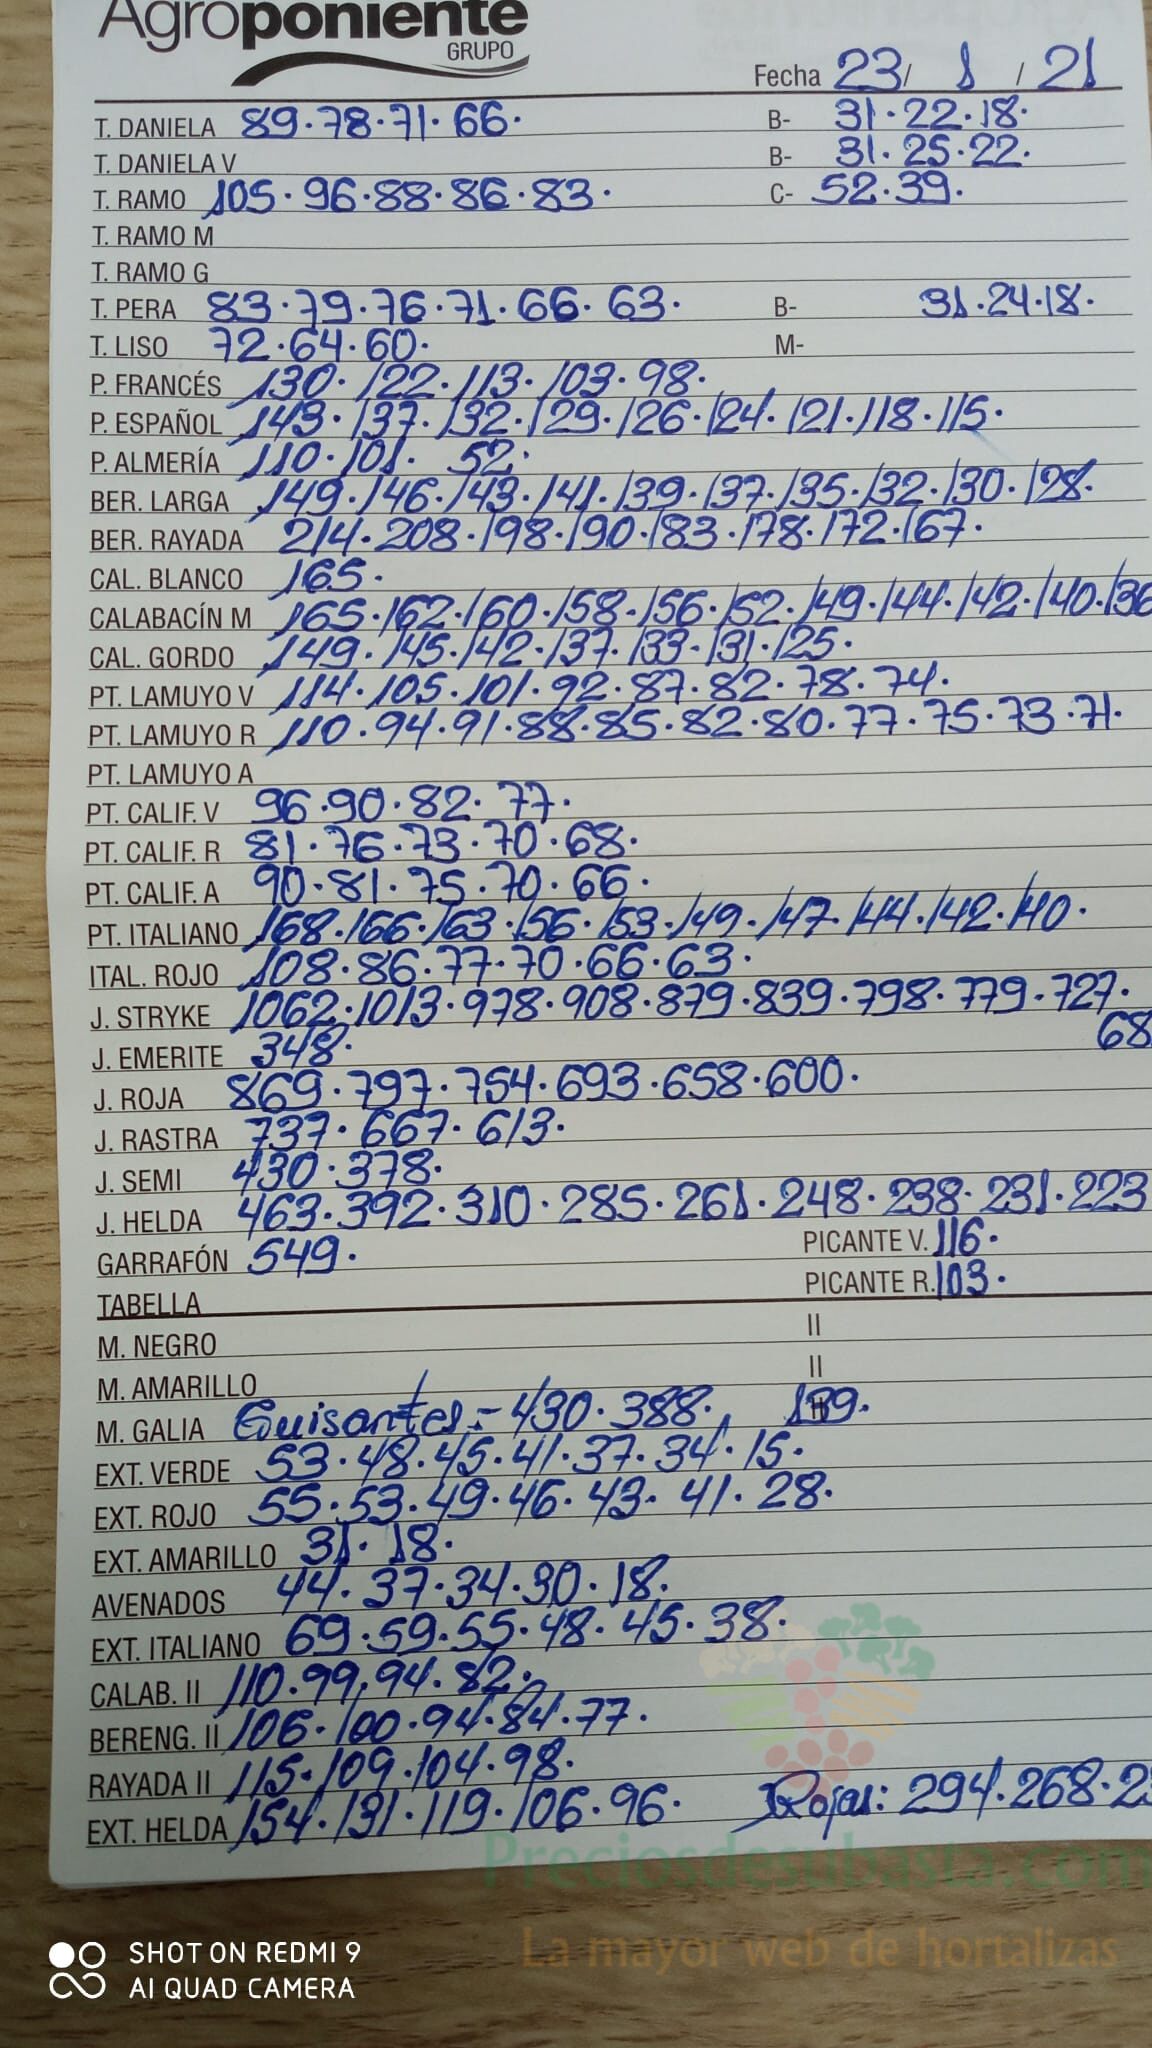 Agroponiente
GRUPO
Fecha 23/ 1 / 21
T. DANIELA 89·78·71·66· B- 31·22·18·
T. DANIELA V B- 31·25·22·
T. RAMO 105·96·88·86·83· C- 52·39·
T. RAMO M
T. RAMO G
T. PERA 83·79·76·71·66·63· B- 31·24·18·
T. LISO 72·64·60· M-
P. FRANCÉS 130·122·113·103·98·
P. ESPAÑOL 143·137·132·129·126·124·121·118·115·
P. ALMERÍA 110·101· 52·
BER. LARGA 149·146·143·141·139·137·135·132·130·128·
BER. RAYADA 214·208·198·190·183·178·172·167·
CAL. BLANCO 165·
CALABACÍN M 165·162·160·158·156·152·149·144·142·140·136
CAL. GORDO 149·145·142·137·133·131·125·
PT. LAMUYO V 114·105·101·92·87·82·78·74·
PT. LAMUYO R 110·94·91·88·85·82·80·77·75·73·71·
PT. LAMUYO A
PT. CALIF. V 96·90·82·77·
PT. CALIF. R 81·76·73·70·68·
PT. CALIF. A 90·81·75·70·66·
PT. ITALIANO 168·166·163·156·153·149·147·144·142·140·
ITAL. ROJO 108·86·77·70·66·63·
J. STRYKE 1062·1013·978·908·879·839·798·779·727·
68
J. EMERITE 348·
J. ROJA 869·797·754·693·658·600·
J. RASTRA 737·667·613·
J. SEMI 430·378·
J. HELDA 463·392·310·285·261·248·238·231·223
GARRAFÓN 549· PICANTE V. 116·
TABELLA PICANTE R. 103·
M. NEGRO II
M. AMARILLO II
M. GALIA Guisantes:- 430·388·, II
EXT. VERDE 53·48·45·41·37·34·15·
EXT. ROJO 55·53·49·46·43·41·28·
EXT. AMARILLO 31·18·
AVENADOS 44·37·34·30·18·
EXT. ITALIANO 69·59·55·48·45·38·
CALAB. II 110·99·94·82·
BERENG. II 106·100·94·84·77·
RAYADA II 115·109·104·98·
EXT. HELDA 154·131·119·106·96· Rojas: 294·268·2
Preciosdesubasta.com
La mayor web de hortalizas
SHOT ON REDMI 9
AI QUAD CAMERA